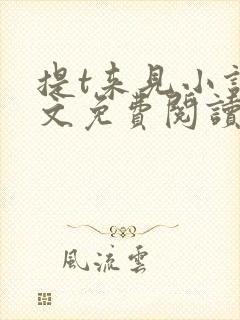 提t来见小
文免費閱讀
風流雲